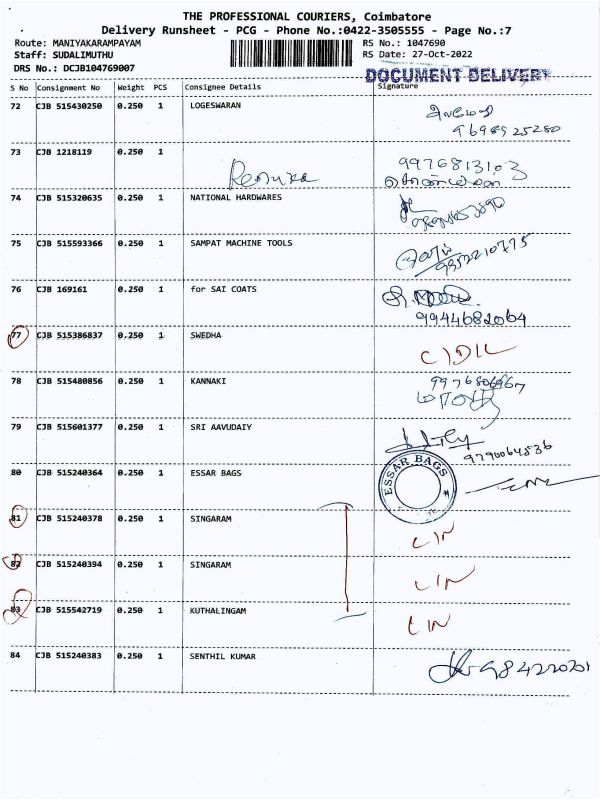 THE PROFESSIONAL COURIERS, Coimbatore
Delivery Runsheet - PCG - Phone No.:0422-3505555 - Page No.:7
Route: MANIYAKARAMPAYAM RS No.: 1047690
Staff: SUDALIMUTHU RS Date: 27-Oct-2022
DRS No.: DCJB104769007 DOCUMENT DELIVERY
S No Consignment No Weight PCS Consignee Details Signature
72 CJB 515430250 0.250 1 LOGESWARAN
73 CJB 1218119 0.250 1 9976813103
74 CJB 515320635 0.250 1 NATIONAL HARDWARES
75 CJB 515593366 0.250 1 SAMPAT MACHINE TOOLS
9952210775
76 CJB 169161 0.250 1 for SAI COATS
9944682064
77 CJB 515386837 0.250 1 SWEDHA
78 CJB 515480856 0.250 1 KANNAKI
79 CJB 515601377 0.250 1 SRI AAVUDAIY
9790064536
80 CJB 515240364 0.250 1 ESSAR BAGS ESSAR BAGS
81 CJB 515240378 0.250 1 SINGARAM
LIN
82 CJB 515240394 0.250 1 SINGARAM
LIN
83 CJB 515542719 0.250 1 KUTHALINGAM
LIN
84 CJB 515240383 0.250 1 SENTHIL KUMAR